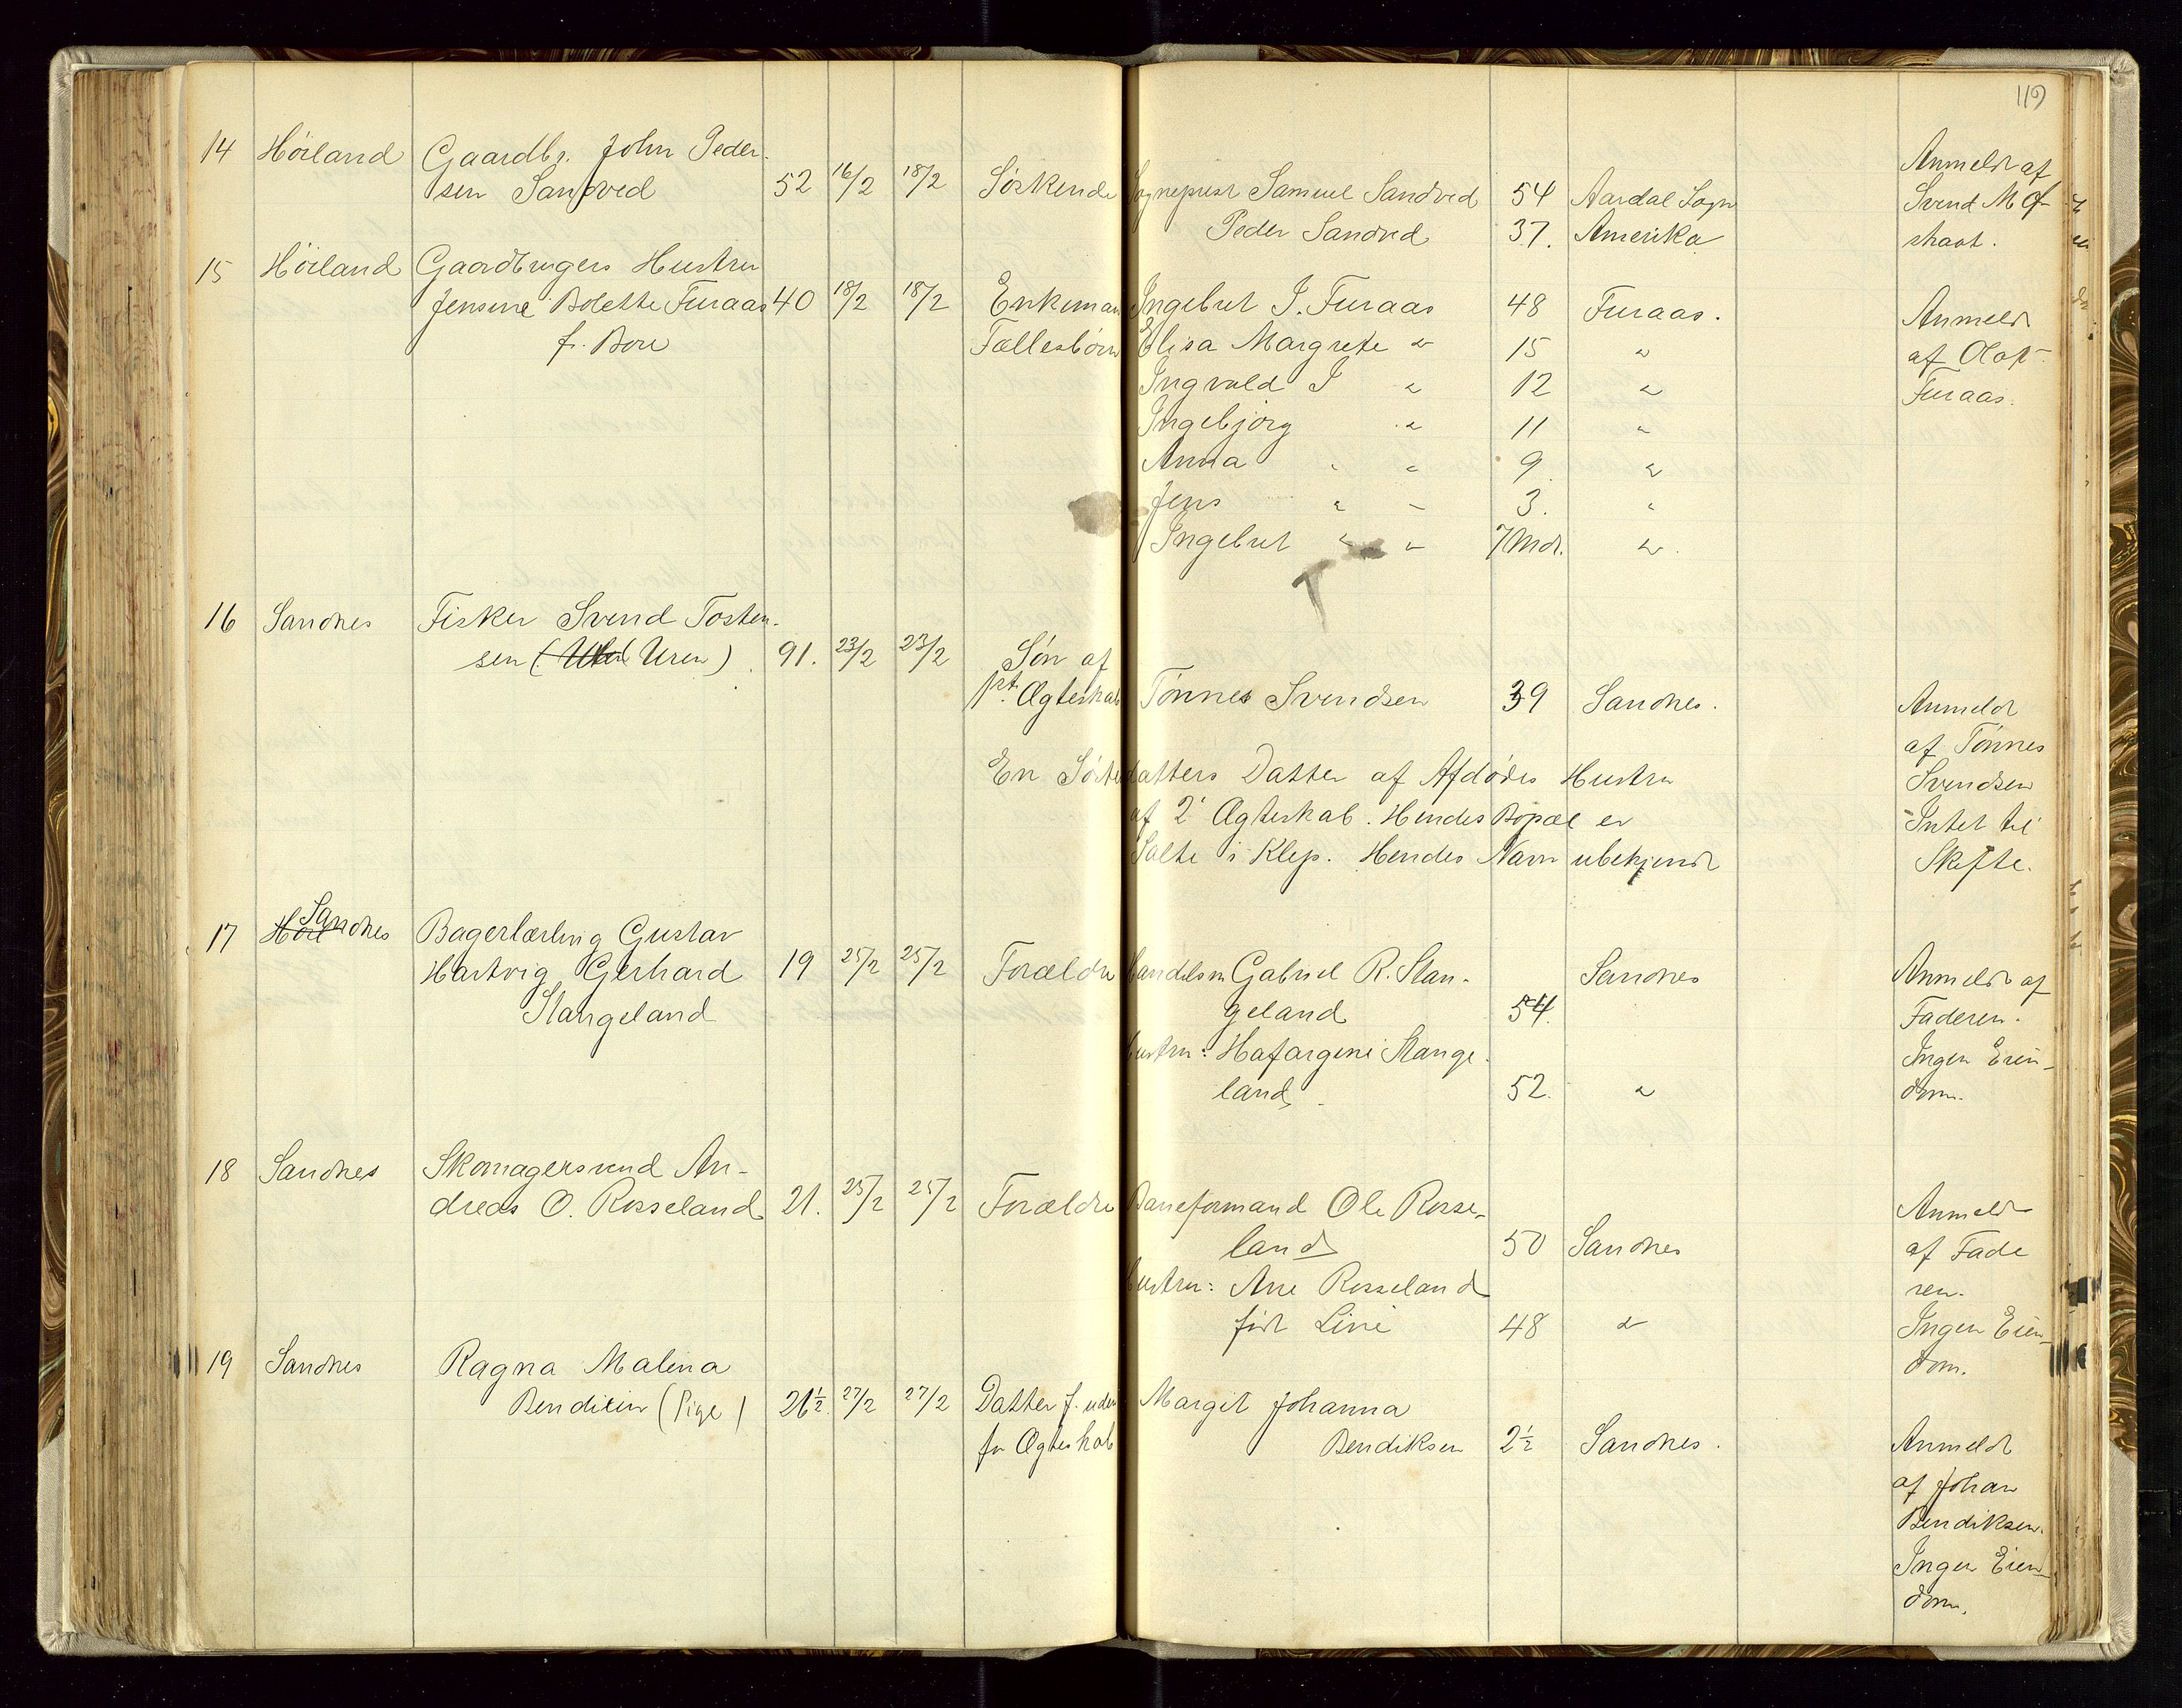 119
14 Höiland Gaardbr. John Peder-
sen Sandved 52 16/2 18/2 Söskende Sogneprest Samuel Sandved 54 Aardal Sogn
Peder Sandved 37. Amerika
Anmeldt af
Svend M
15 Höiland Gaardbrugers Hustru
Jensine Bolette Furaas 40 18/2 18/2 Enkeman Ingebret I. Furaas 48 Furaas.
f. Bore Fællesbørn Elisa Margrete " 15 "
Ingvald I " 12 "
Ingebjörg " 11 "
Anna " " 9. "
Jens " " 3. "
Ingebret " " 7 Mdr. "
Anmeldt
af Olaf
Furaas.
16 Sandnes Fisker Svend Tosten-
sen (Uren) 91. 23/2 23/2 Søn af
Ægteskab Tönnes Svendsen 39 Sandnes.
En Søsterdatters Datter af Afdødes Hustru
af 2' Ægteskab. Hendes Bopæl er
Salte i Klep. Hendes Navn ubekjendt
Anmeldt
af Tönnes
Svendsen
Intet til
Skifte.
17 Sandnes Bagerlærling Gustav
Hartvig Gerhard 19 25/2 25/2 Forældre Handelsm Gabriel R. Stan-
Stangeland geland 54. Sandnes
Hustru: Hafargine Stange-
land. 52. "
Anmeldt af
Faderen.
Ingen Eien-
dom.
18 Sandnes Skomagersvend An-
dreas O. Rosseland 21. 25/2 25/2 Forældre Baneformand Ole Rosse-
land 50 Sandnes
Hustru: Ane Rosseland
född Line 48 "
Anmeldt
af Fade
ren.
Ingen Eien-
dom.
19 Sandnes Ragna Malena
Bendixen (Pige) 21½. 27/2 27/2 Datter f. uden Margit Johanna
for Ægteskab Bendiksen 2½ Sandnes.
Anmeldt
af Johan
Bendiksen.
Ingen Eien-
dom.